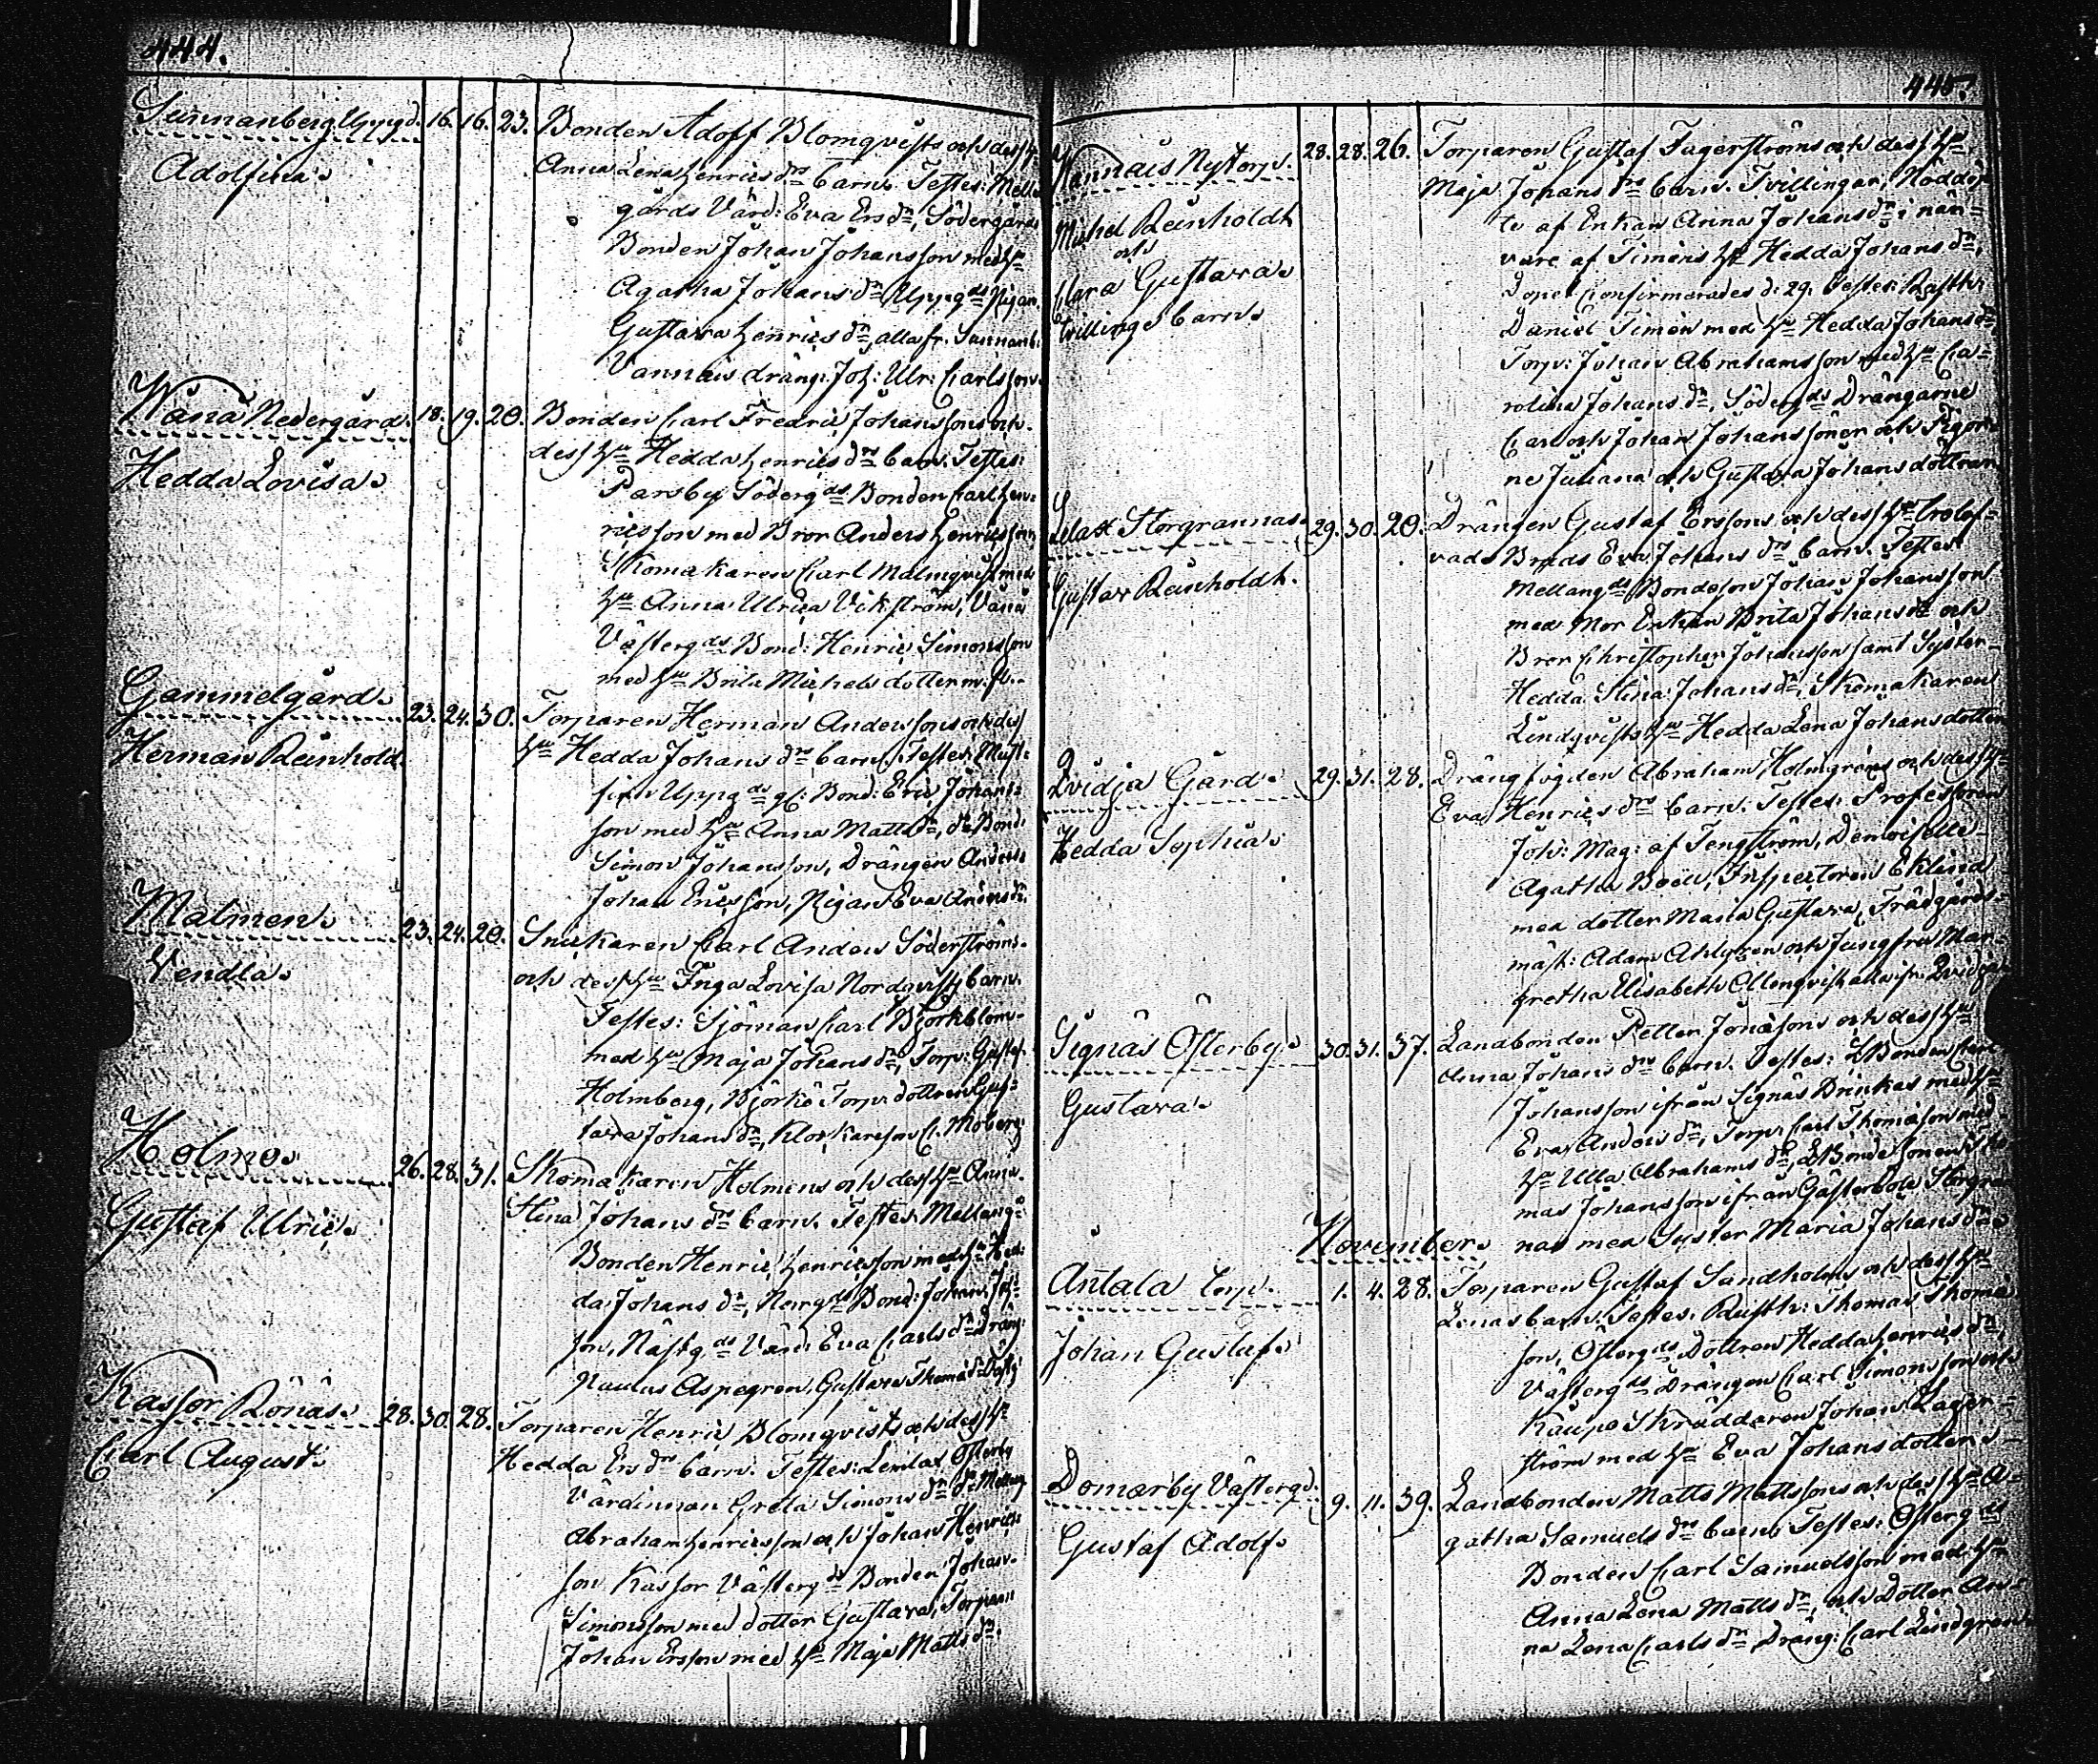 444.
Sunnanberg Uppgd. 16. 16. 23. Bonden Adolf Blomqvists och dess Hu
Adolfina. Anna Lena Henricsdrs barn. Testes: Mellan
gårds Värd: Eva Ersdr, Södergårds
Bonden Johan Johansson med Hu
Agatha Johansdr, Uppgds Pigan
Gustava Henricsdr, alla fr. Sunnanb:
Vannäis dräng: Joh: Ulr: Carlsson.
Wånå Nedergård. 18. 19. 20. Bonden Carl Fredric Johanssons och
Hedda Lovisa. dess Hu Hedda Henricsdrs barn. Testes:
Parsby Södergds Bonden Carl Hen-
ricsson med Bror Anders Henricsson
Skomakaren Carl Malmqvist med
Hu Anna Ulrica Vikström, Vånå
Västergds Bond: Henric Simonsson
med Hu Brita Michelsdotter m. fl.
Gammelgård. 23. 24. 30. Torparen Herman Anderssons och dess
Herman Reinhold. Hu Hedda Johansdrs barn. Testes:
Uppgds Bond: Eric Johans-
son med Hu Anna Mattsdr, do Bond:
Simon Johansson, Drängen Anders
Johan Ericsson, Pigan Eva Andersdr.
Malmen. 23. 24. 20. Snickaren Carl Anders Söderströms
Vendla. och dess Hu Inga Lovisa Nordqvists barn.
Testes: Sjöman Carl Björkblom
med Hu Maja Johansdr, Torp: Gustaf
Holmberg, Björkö Torp. dottren Gus-
tava Johansdr, Klockareson C. Moberg
Holmo. 26. 28. 31. Skomakaren Holmens och dess Hu Anna
Gustaf Ulric. Stina Johansdrs barn. Testes: Mellangds
Bonden Henric Henricsson med Hu Hed-
da Johansdr, Norrgds Bond: Johan Joh:
son, Västgds Värd: Eva Carlsdr Dräng:
Paulus Aspegren, Gustava Thomasdr
Kassor Rönäs. 28. 30. 28. Torparen Henric Blomqvists och dess Hu
Carl August. Hedda Ersdrs barn. Testes: Lemlax Österby
Värdinnan Greta Simonsdr do Mellang
Abraham Henricsson och Johan Henrics-
son Kassor Västergds Bonden Johan
Simonsson med dotter Gustava, Torparen
Johan Ersson med Hu Maja Mattsdr.
445.
Vannäis Nytorp. 28. 28. 26. Torparen Gustaf Fagerströms och dess Hu
Michel Reinholdt Maja Johansdrs barn. Tvillingar, Nöddöp-
och te af Enkan Anna Johansdr i när-
Clara Gustava. vare af Timéns Hu Hedda Johansdr,
tvillinge barn. Dopet Confirmerades d. 29. Testes: Rusth:
Daniel Timén med Hu Hedda Johansdr
Torp: Johan Abrahamsson med Hu Ca-
rolina Johansdr, Södergds Drängarne
Carl och Johan Johanssöner och Pigor-
ne Juliana och Gustava Johansdöttrar
Lelax Storgrannas. 29. 30. 20. Drängen Gustaf Erssons och dess Hu trolof-
Gustav Reinholdt. vade Bruds Eva Johansdrs barn. Testes:
Mellangds Bondeson Johan Johansson
med Mor Enkan Brita Johansdr och
Bror Christopher Johansson samt Syster
Hedda Stina Johansdr, Skomakaren
Lindqvists Hu Hedda Lena Johansdotter
Qvidja Gård. 29. 31. 28. Drängfogden Abraham Holmgréns och dess Hu
Hedda Sophia. Eva Henricsdrs barn. Testes: Professoren
Joh: Mag: af Tengström, Demoiselle
Agatha Boëlli, Inspectoren Eklund
med dotter Maria Gustava, Trädgårds-
mäst: Adam Ahlgren och Jungfru Mar-
gretha Elisabeth Ollenqvist alla ifr. Qvidja.
Signäs Österby. 30. 31. 37. Landbonden Petter Jonassons och dess Hu
Gustava. Anna Johansdrs barn. Testes: LBonden Carl
Johansson ifrån Signäs Brinkas med Hu
Eva Andersdr, Torp. Carl Thomasson med
Hu Ulla Abrahamsdr, LBonde sonen Tho-
mas Johansson ifrån Gästerböle Storgran-
nas med Syster Maria Johansdr.
November.
Antala torp. 1. 4. 28. Torparen Gustaf Sandholms och dess Hu
Johan Gustaf. Lenas barn. Testes: Rusth: Thomas Thomas-
son, Östergds Dottren Hedda Henricsdr,
Västergds Drängen Carl Simonsson och
Kaupo Skräddaren Johan Lager-
ström med Hu Eva Johansdotter.
Domarby Västergd. 9. 11. 39. Landbonden Matts Mattssons och dess Hu A-
Gustaf Adolf. gatha Samuelsdrs barn. Testes: Östergds
Bonden Carl Samuelsson med Hu
Anna Lena Mattsdr, och Dotter An-
na Lena Carlsdr Dräng: Carl Lindgren